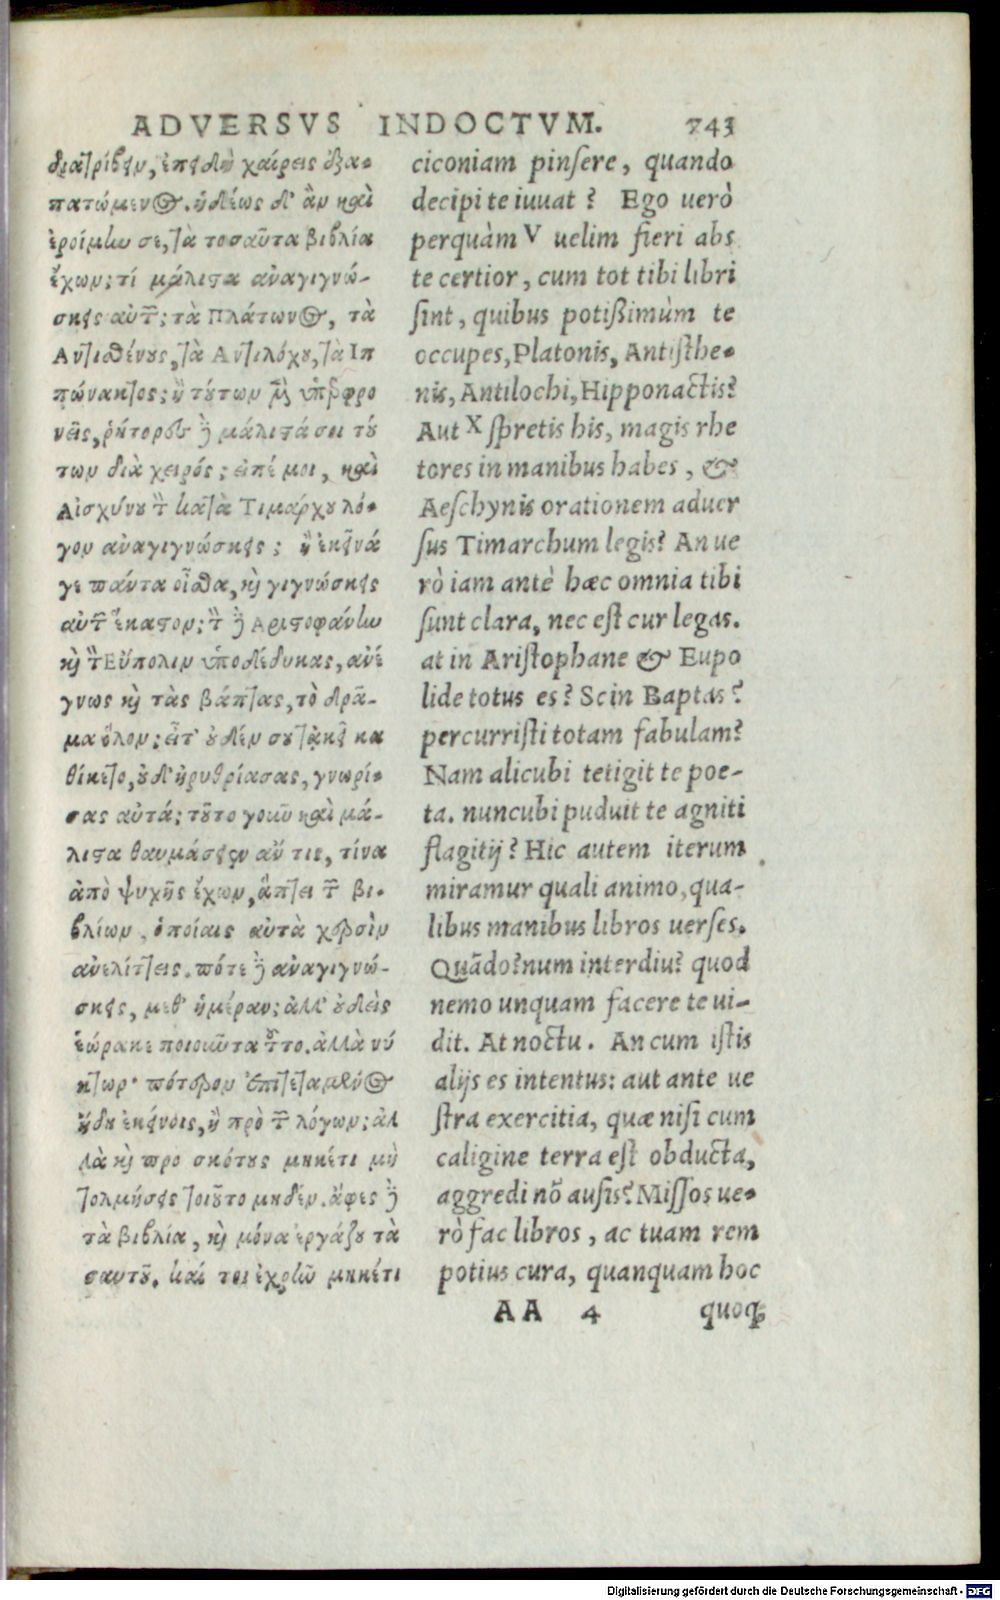 ADVERSVS INDOCTVM. 743
διατρίβειν, ἐπειδὴ χαίρεις ἐξα-
πατώμενος. ἡδέως δ' ἂν καὶ
ἐροίμην σε, τὰ τοσαῦτα βιβλία
ἔχων; τί μάλιστα ἀναγιγνώ-
σκεις αὐτῶν; τὰ Πλάτωνος, τὰ
Αντισθένους, τὰ Αντιλόχου, τὰ Ιπ
πώνακτος; ἢ τούτων μὲν ὑπερφρο
νεῖς, ῥήτορες δὲ μάλιστά σοι τού
των διὰ χειρός; εἰπέ μοι, καὶ
Αἰσχίνου τὸν κατὰ Τιμάρχου λό-
γον ἀναγιγνώσκεις; ἢ ἐκεῖνά
γε πάντα οἶσθα, καὶ γιγνώσκεις
αὐτῶν ἕκαστον; τὸν δὲ Αριστοφάνην
καὶ τὸν Εὔπολιν ὑποδέδυκας, ἀνέ
γνως καὶ τὰς βάπτας, τὸ δρᾶ-
μα ὅλον; εἶτ' οὐδέν σου τἀκεῖ κα
θίκετο, οὐδ' ἠρυθρίασας, γνωρί-
σας αὐτά; τοῦτο γοῦν καὶ μά-
λιστα θαυμάσειεν ἄν τις, τίνα
ἀπὸ ψυχῆς ἔχων, ἅπτει τῶν βι-
βλίων, ὁποίαις αὐτὰ χερσὶν
ἀνελίττεις. πότε δὲ ἀναγιγνώ-
σκεις, μεθ' ἡμέραν; ἀλλ' οὐδεὶς
ἑώρακε ποιοῦντα τοῦτο. ἀλλὰ νύ
κτωρ· πότερον ἐπιτεταμένος
ἤδη ἐκείνοις, ἢ πρὸ τῶν λόγων; ἀλ
λὰ καὶ προ σκότους μηκέτι μὴ
τολμήσεις τοιοῦτο μηδέν. ἄφες δὲ
τὰ βιβλία, καὶ μόνα ἐργάζου τὰ
σαυτοῦ. καί τοι ἐχρῆν μηκέτι
ciconiam pinsere, quando
decipi te iuuat? Ego uerò
perquàm V uelim fieri abs
te certior, cum tot tibi libri
sint, quibus potißimùm te
occupes, Platonis, Antisthe-
nis, Antilochi, Hipponactis?
Aut X spretis his, magis rhe
tores in manibus habes, &
Aeschynis orationem aduer
sus Timarchum legis? An ue
rò iam antè hæc omnia tibi
sunt clara, nec est cur legas.
at in Aristophane & Eupo
lide totus es? Sc in Baptas?
percurristi totam fabulam?
Nam alicubi tetigit te poe-
ta. nuncubi puduit te agniti
flagitij? Hic autem iterum
miramur quali animo, qua-
libus manibus libros uerses.
Quãdo? num interdiu? quod
nemo unquam facere te ui-
dit. At noctu. An cum istis
alijs es intentus: aut ante ue
stra exercitia, quæ nisi cum
caligine terra est obducta,
aggredi nõ ausis? Missos ue-
rò fac libros, ac tuam rem
potius cura, quanquam hoc
AA 4 quoq;
Digitalisierung gefördert durch die Deutsche Forschungsgemeinschaft - DFG